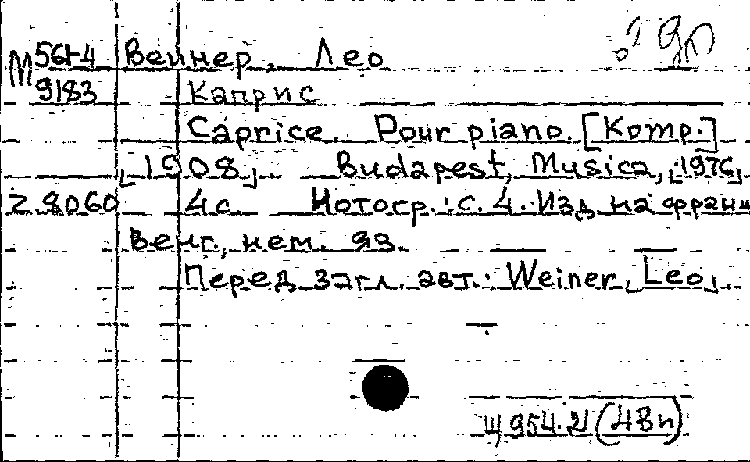 М 561-4 Вейнер, Лео
9183 Каприс
Caprice. Pour piano. [Комр.]
[1908]. Budapest, Musica, [1976]
Z. 8060 4 с. Нотогр.: с. 4. Изд. на франц
венг., нем. яз.
Перед загл. авт.: Weiner, Leo.
Щ 954.21 (4Вп)